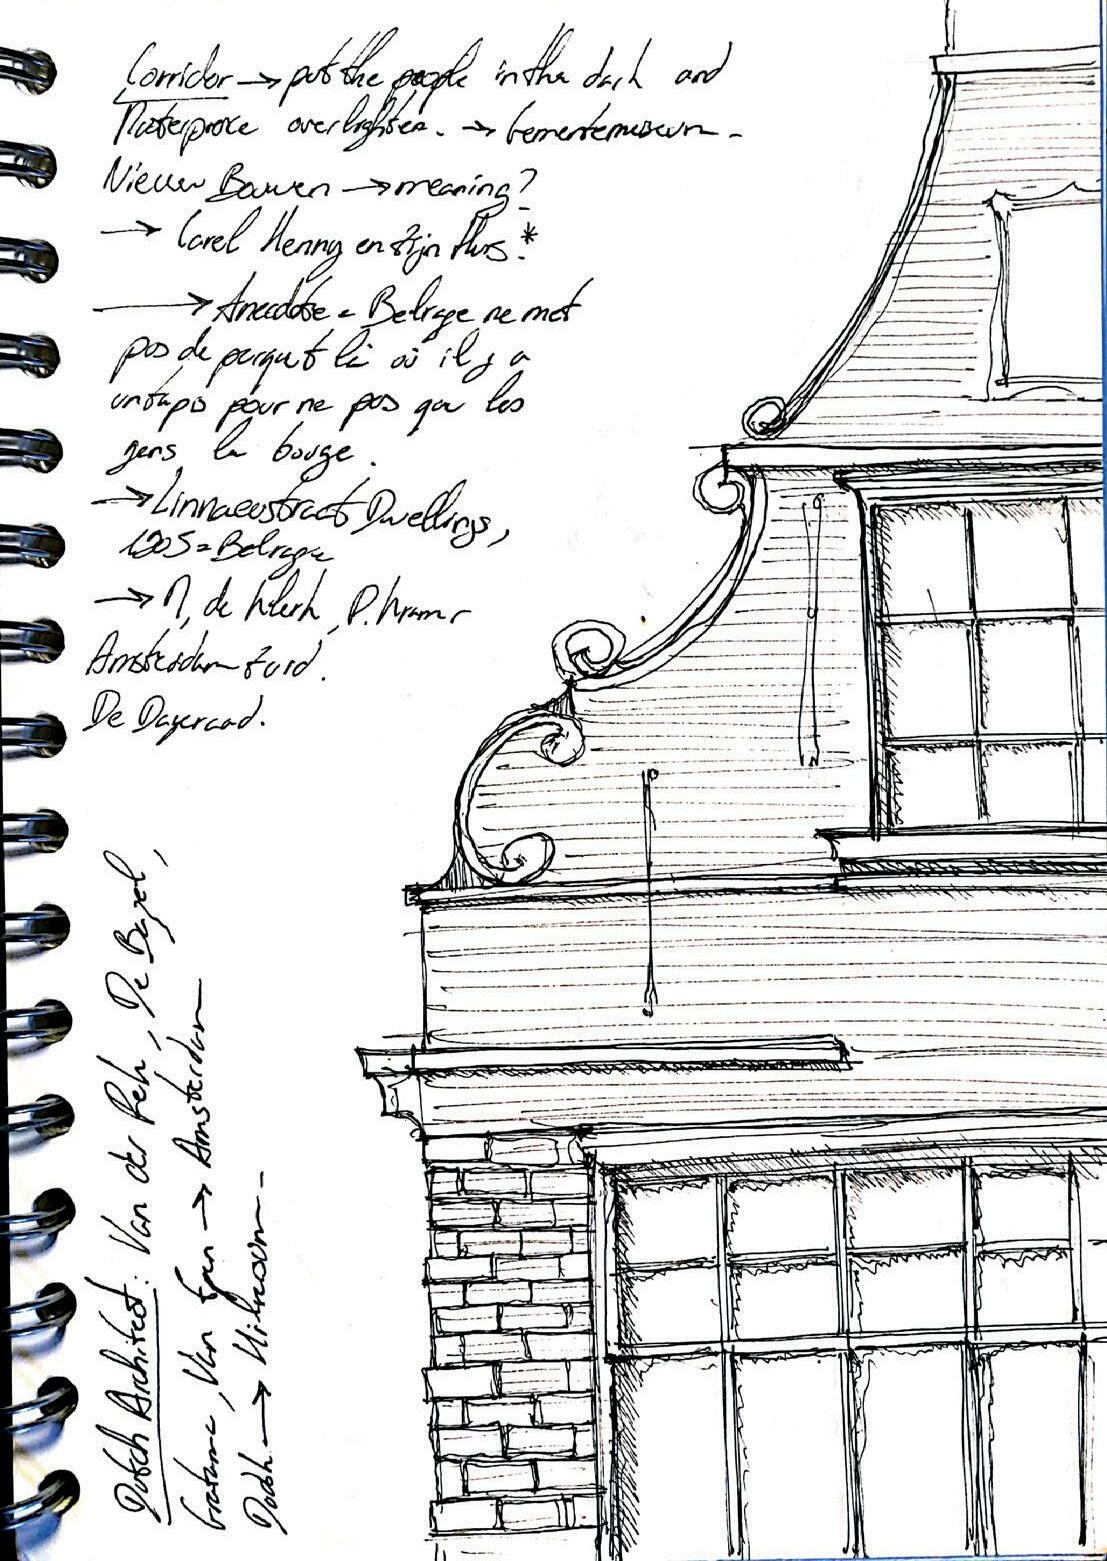 Corridor → put the people in the dark and
Masterpiece overlighten. → Gemeentemuseum -
Nieuw Bouwen → meaning?
→ Carel Henny en zijn Huis.*
→ Anecdote = Belrage ne met
pas de parquet là où il y a
un tapis pour ne pas que les
gens la bouge.
→ Linnaeustraat Dwellings,
1905 = Belrage
→ M, de Klerk, P. Kramer
Amsterdam Zuid.
De Dageraad.
Dutch Architect: Van der Peh, De Bazel,
Gratama, Van Epen → Amsterdam
→ Hilversum -